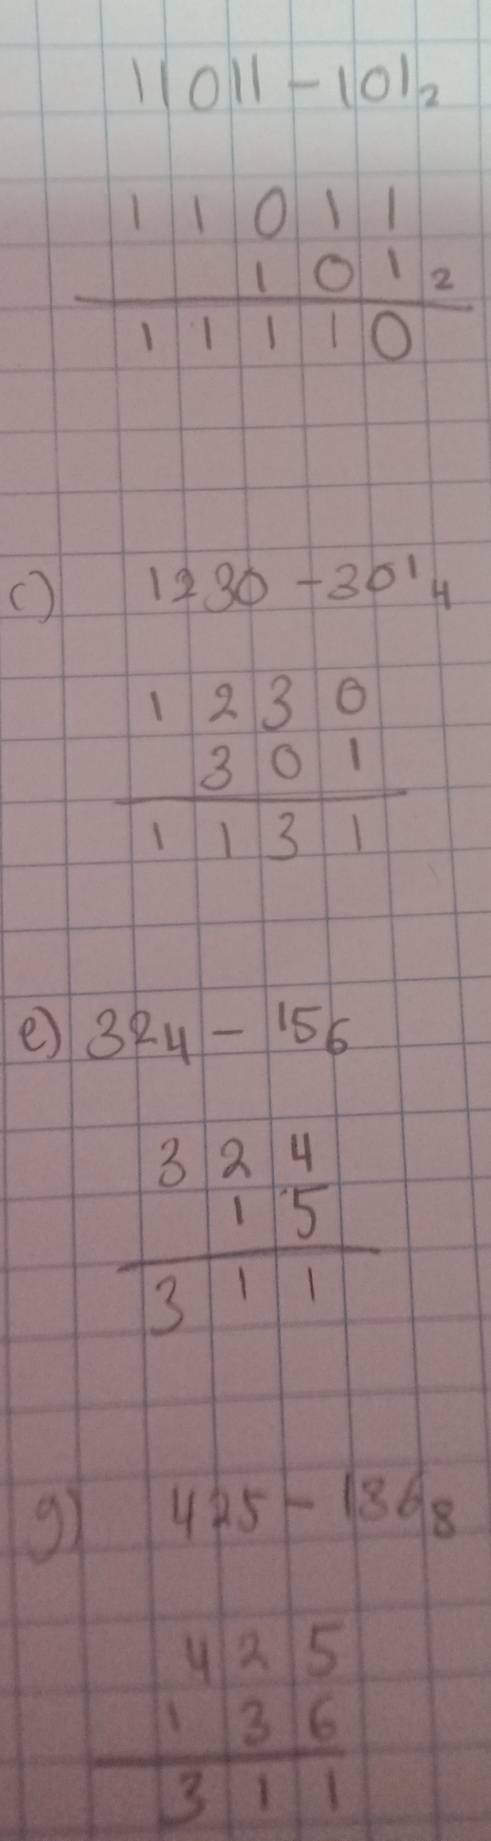 11011 - 101₂
1 1 0 1 1
1 0 1 ₂
1 1 1 1 0
c) 1230 - 301₄
1 2 3 0
3 0 1
1 1 3 1
e) 324 - 15₆
3 2 4
1 5
3 1 1
g) 425 - 136₈
4 2 5
1 3 6
3 1 1